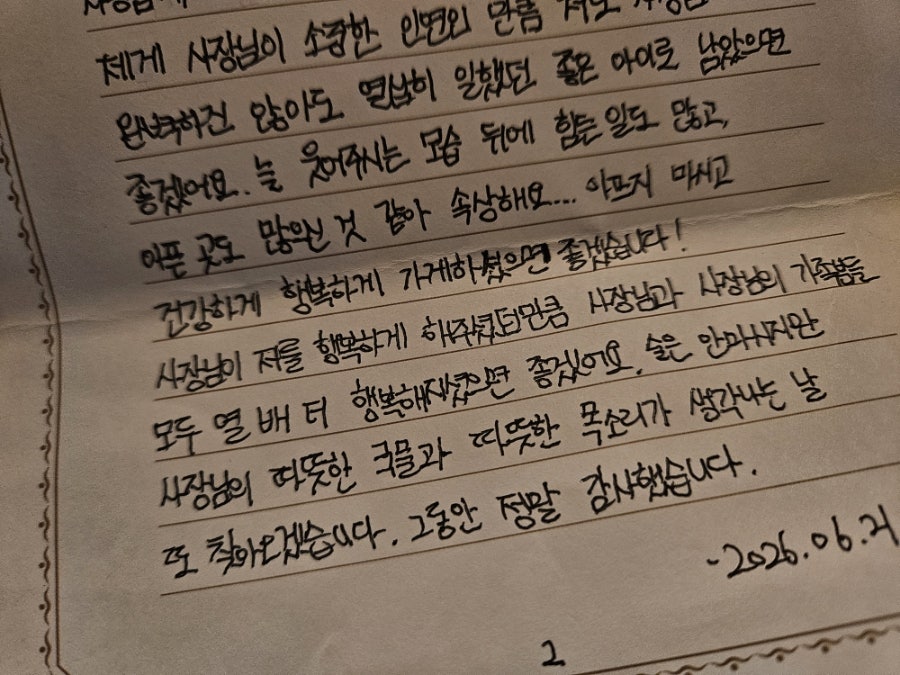 체게 사장님이 소중한 인연인 만큼 저도 사장님
완벽하진 않아도 열심히 일했던 좋은 아이로 남았으면
좋겠어요. 늘 웃어주시는 모습 뒤에 힘든 일도 많고,
아픈 곳도 많으신 것 같아 속상해요... 아프지 마시고
건강하게 행복하게 가게하셨으면 좋겠습니다!
사장님이 저를 행복하게 해주셨던만큼 사장님과 사장님의 가족분들
모두 열 배 더 행복해지셨으면 좋겠어요. 술은 안마시지만
사장님의 따뜻한 국물과 따뜻한 목소리가 생각나는 날
또 찾아오겠습니다. 그동안 정말 감사했습니다.
-2026.06.21
2